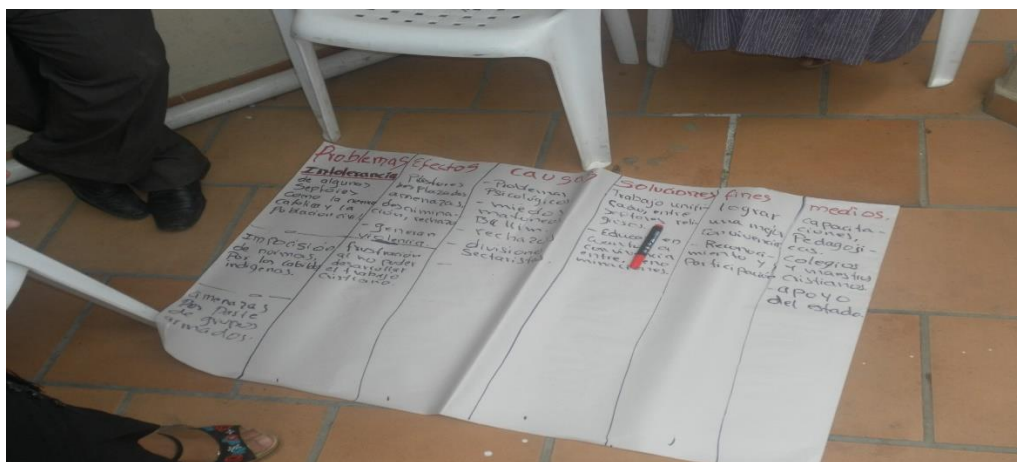 Problemas
Intolerancia
de algunos
Septores
Como la
Catolica y la
Poblacion civil
Imposision
de normas,
Por los Cabildos
indigenas.
amenazas
Por Parte
de grupos
armados.
Efectos
Pastores
desplazados
amenazas,
descrimina-
ción, rechazo
- generan
violencia
frustracion
al no poder
desarrollar
el trabajo
cristiano.
causas
- Problemas
Psicológicos
- miedos
- rechazos
- divisiones
Sectaristas
Soluciones
trabajo
entre
Septores reli
giosos.
- Educar en
entre
fines
lograr
una mejor
Convivencia
- Reconoci-
miento y
Participación
medios.
capacita-
ciones,
Pedagogi-
cas.
Colegios
y maestros
Cristianos
- apoyo
del estado.